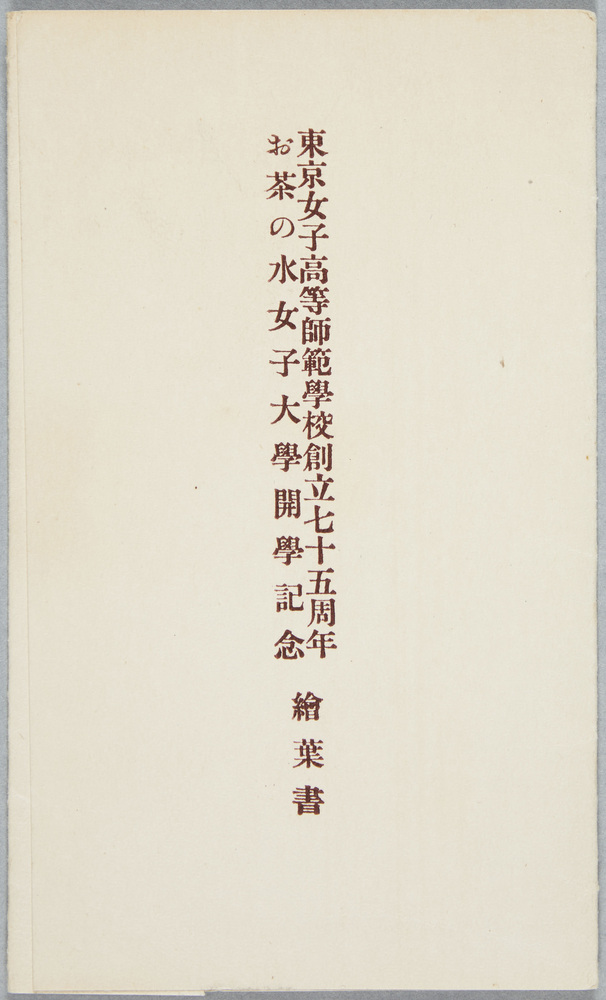 東京女子高等師範學校創立七十五周年
お茶の水女子大學開學記念
繪葉書